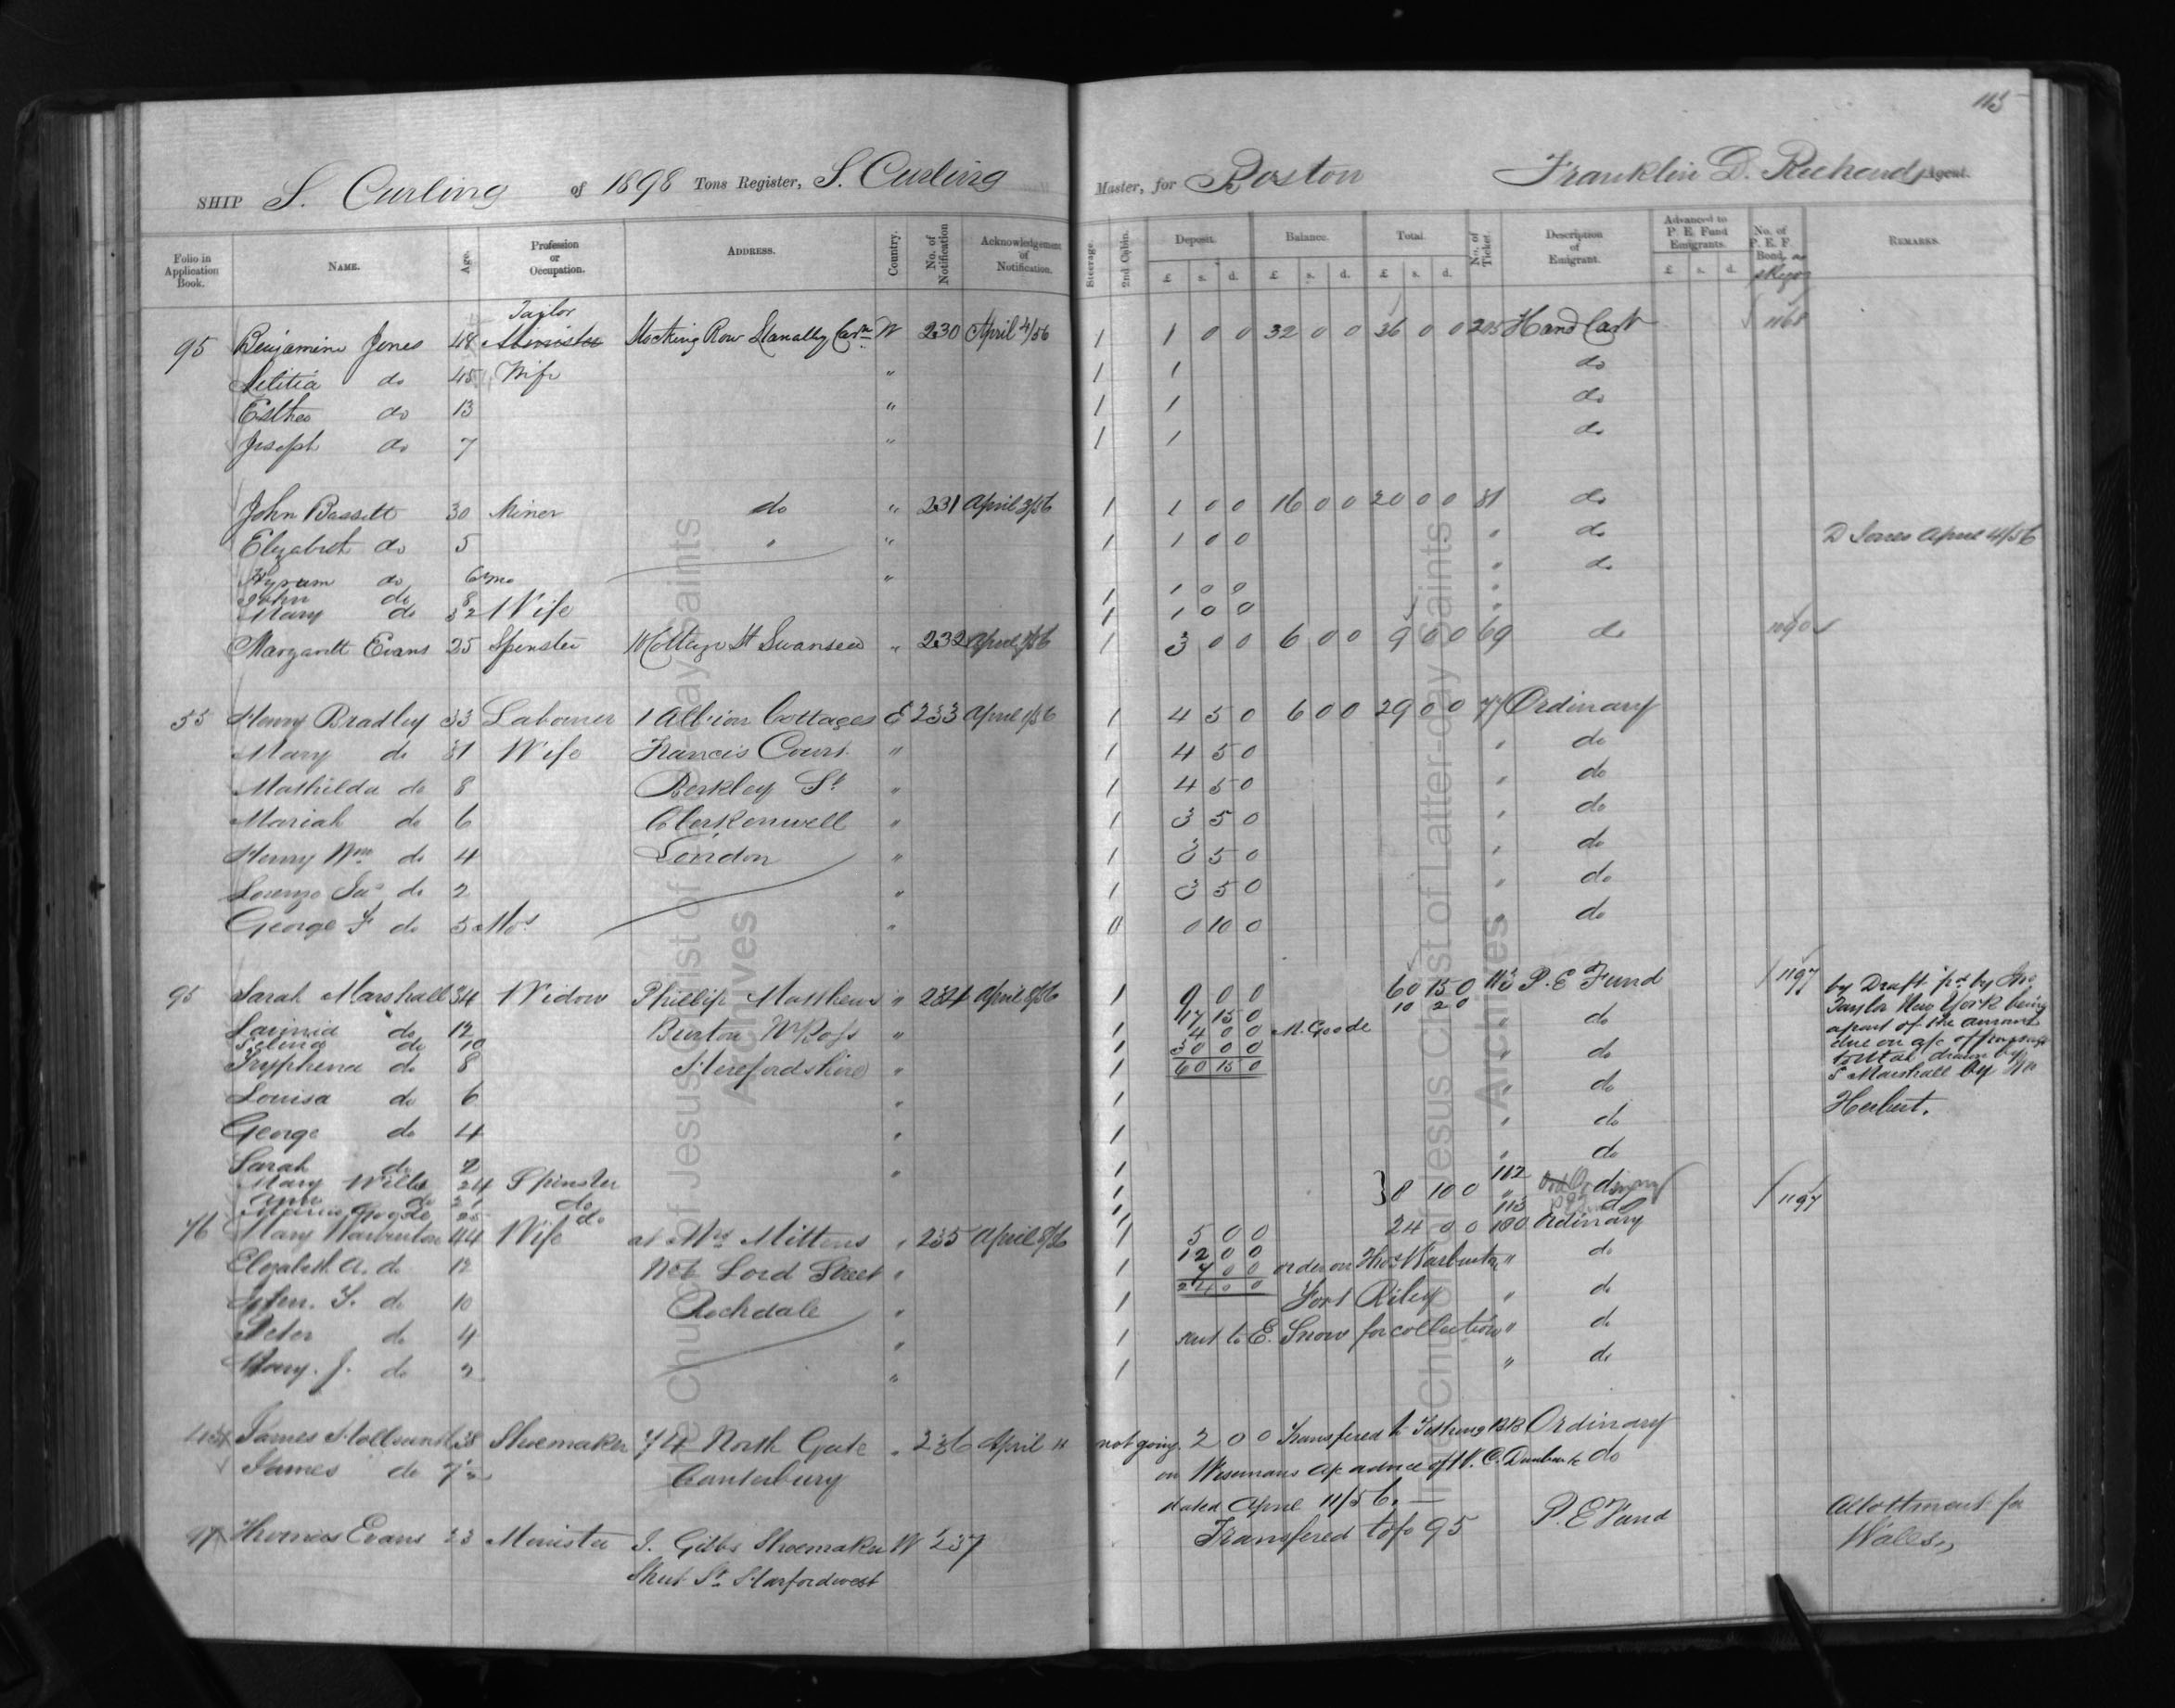 115
SHIP S. Curling of 1898 Tons Register, S. Curling Master, for Boston Franklin D. Richards Agent.
Folio in Application Book. NAME. Age. Profession or Occupation. ADDRESS. Country. No. of Notification Acknowledgement of Notification. Steerage. 2nd Cabin. Deposit. Balance. Total. No. of Ticket. Description of Emigrant. Advanced to P. E. Fund Emigrants. No. of P. E. F. Bond, REMARKS.
£ s. d. £ s. d. £ s. d. £ s. d.
Taylor
95 Benjamin Jones 48 Minister Stocking Row Llanally Carn W 230 April 4/56 1 1 0 0 32 0 0 36 0 0 205 Hand Cart 1168
Letitia do 45 Wife " 1 1 do
Esther do 13 " 1 1 do
Joseph do 7 " 1 1 do
John Bassett 30 Miner do " 231 April 3/56 1 1 0 0 16 0 0 20 0 0 81 do
Elizabeth do 5 " " 1 1 0 0 " do D Jones April 4/56
Hyrum do 6 mo " " do
John do 8 1 1 0 0 "
Mary do 32 Wife 1 1 0 0 "
Margarett Evans 25 Spinster Cottage St Swansea " 232 April 56 1 3 0 0 6 0 0 9 0 0 69 do 1190
55 Henry Bradley 33 Labourer 1 Albion Cottages E 233 April /56 1 4 5 0 6 0 0 29 0 0 77 Ordinary
Mary do 31 Wife Francis Court " 1 4 5 0 " do
Mathilda do 8 Berkley St " 1 4 5 0 " do
Mariah do 6 Clerkenwell " 1 3 5 0 " do
Henry Wm do 4 London " 1 3 5 0 " do
Lorenzo Jas do 2 " 1 3 5 0 " do
George F do 5 Mos " 0 0 10 0 " do
95 Sarah Marshall 34 Widow Phillip Matthews " 234 April 8/56 1 9 0 0 60 15 0 113 P. E Fund 1197 by Draft pd by Jno
17 15 0 10 2 0 Taylor New York being
Lavinia do 12 Burton Nr Ross " 1 4 0 0 M. Goode " do a part of the amount
Selina do 10 1 30 0 0 due on a/c of passage
Tryphena do 8 Herefordshire " 1 60 15 0 " do to Utah drawn by
S Marshall by Wm
Louisa do 6 " 1 " do Herbert.
George do 4 " 1 " do
Sarah do 2 " 1 " do
Mary Wills 24 Spinster 1 8 10 0 112 Ordinary
Ann do 21 do 1 " do
Maria Goode 25 do 1 113 1197
76 Mary Warburton 44 Wife at Mrs Mittens " 235 April 8/56 1 5 0 0 24 0 0 180 Ordinary
12 0 0
Elizabeth A. do 12 No 6 Lord Street " 1 7 0 0 order on Thos Warburton " do
24 0 0
John. S. do 10 Rochdale " 1 Fort Riley " do
Peter do 4 " 1 sent to E. Snow for collection " do
Mary. J. do 2 " 1 " do
James Hollsund 38 Shoemaker 74 North Gate " 236 April 11 not going 2 0 0 Transfered to Tithing Ordinary
James do 7 Canterbury on Wisemans a/c advice of W. C. Dunbar do
dated April 11/56.
97 Thomas Evans 23 Minister J. Gibbs Shoemaker W 237 Transfered to fo 95 P. E Fund Allottment for
Shut St Harfordwest Wales
The Church of Jesus Christ of Latter-day Saints
Archives
The Church of Jesus Christ of Latter-day Saints
Archives